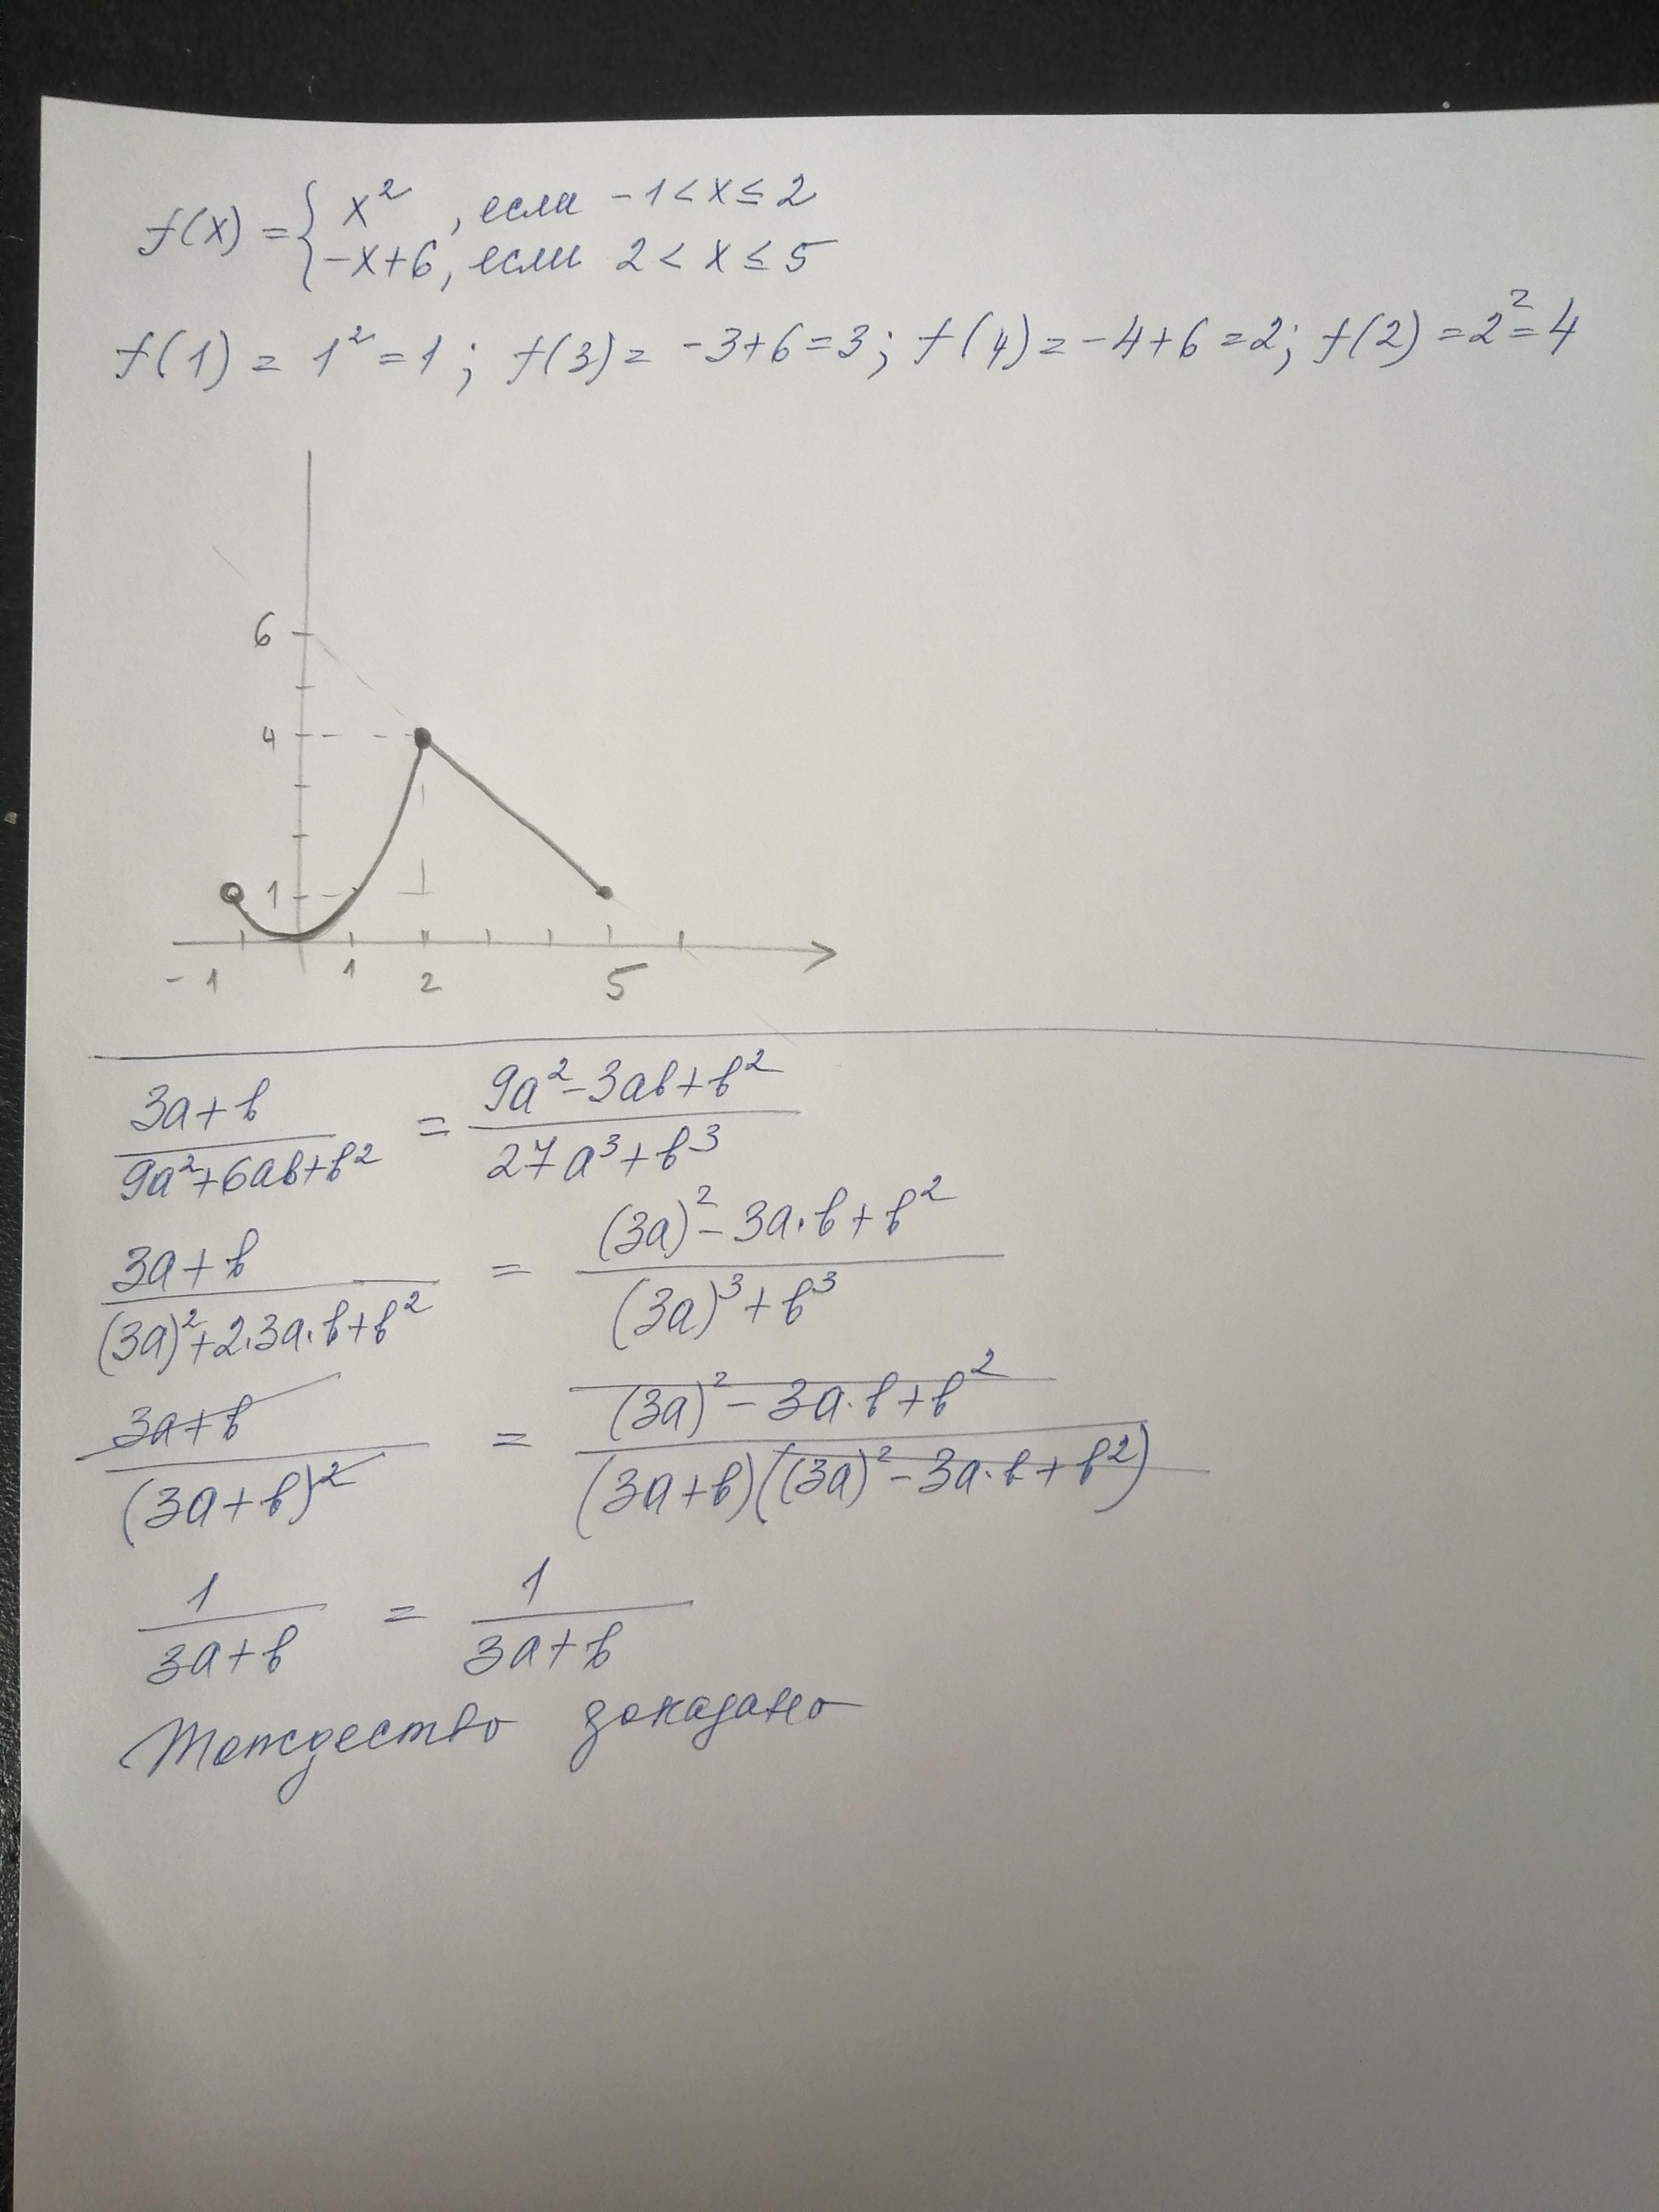 f(x) = { x², если -1 < x ≤ 2
-x+6, если 2 < x ≤ 5
f(1) = 1² = 1; f(3) = -3+6=3; f(4) = -4+6=2; f(2) = 2² = 4
6
4
1
-1 1 2 5
(3a+b)/(9a²+6ab+b²) = (9a²-3ab+b²)/(27a³+b³)
(3a+b)/((3a)²+2·3a·b+b²) = ((3a)²-3a·b+b²)/((3a)³+b³)
(3a+b)/(3a+b)² = ((3a)²-3a·b+b²)/((3a+b)((3a)²-3a·b+b²))
1/(3a+b) = 1/(3a+b)
Тождество доказано